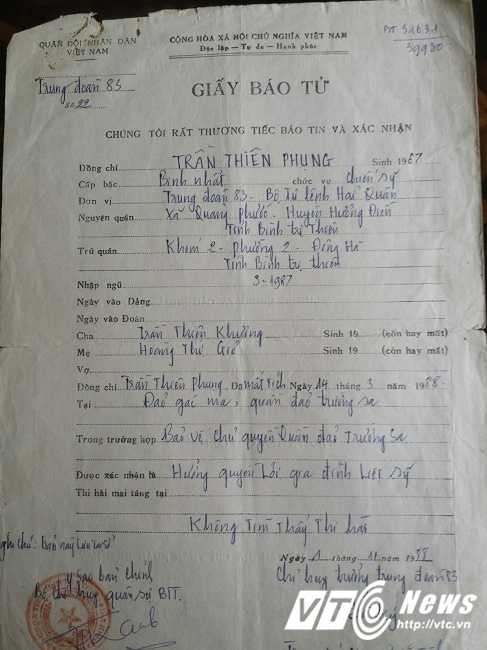 QUÂN ĐỘI NHÂN DÂN
VIỆT NAM
CỘNG HÒA XÃ HỘI CHỦ NGHĨA VIỆT NAM
Độc lập — Tự do — Hạnh phúc
Trung đoàn 83
Số 22
GIẤY BÁO TỬ
CHÚNG TÔI RẤT THƯƠNG TIẾC BÁO TIN VÀ XÁC NHẬN
Đồng chí TRẦN THIÊN PHỤNG Sinh 1967
Cấp bậc Binh nhất chức vụ chiến sỹ
Đơn vị Trung đoàn 83 - Bộ Tư lệnh Hải Quân
Nguyên quán Xã Quảng phước - Huyện Hương Điền
Tỉnh Bình trị Thiên
Trú quán Khóm 2 - Phường 2 - Đông Hà
Tỉnh Bình trị thiên
Nhập ngũ 3-1987
Ngày vào Đảng
Ngày vào Đoàn
Cha Trần Thiên Khương Sinh 19 (còn hay mất)
Mẹ Hoàng Thị Sinh 19 (còn hay mất)
Vợ
Đồng chí Trần Thiên Phụng Đã mất tích Ngày 14 tháng 3 năm 1988
Tại Đảo gạc ma, quần đảo trường sa
Trong trường hợp Bảo vệ chủ quyền Quần đảo Trường Sa
Được xác nhận là Hưởng quyền lợi gia đình Liệt sỹ
Thi hài mai táng tại
Không Tìm Thấy Thi hài
Ngày 1 tháng 11 năm 1988
sao bản chính
Bộ chỉ huy quân sự BTT.
Chỉ huy trưởng trung đoàn 83
VTC News
http://vtc.vn